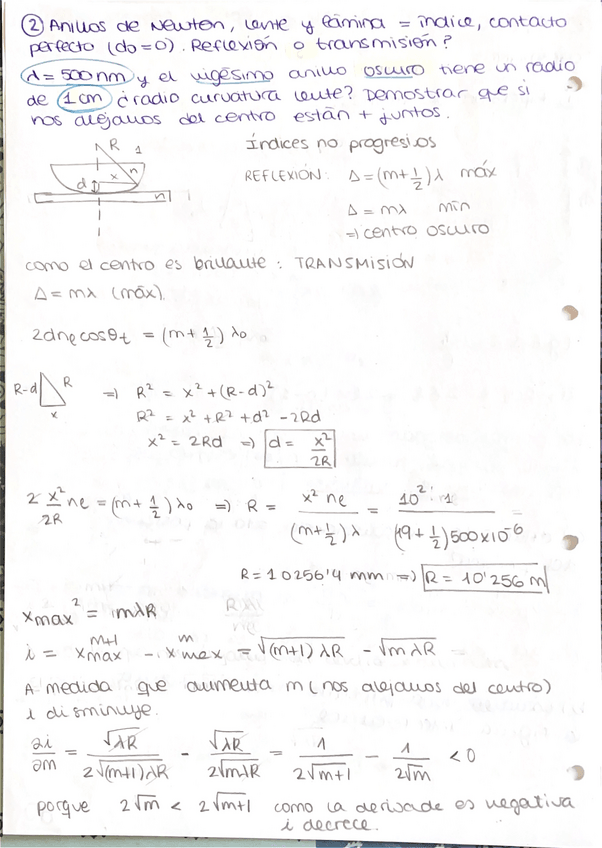 ② Anillos de Newton, lente y lámina = índice, contacto
perfecto (d0=0). Reflexión o transmisión?
λ=500nm y el vigésimo anillo oscuro tiene un radio
de 1cm ¿radio curvatura lente? Demostrar que si
nos alejamos del centro están + juntos.
R 1
x n
d
n
Índices no progresivos
REFLEXIÓN: Δ=(m+1/2)λ máx
Δ = mλ min
⇒ centro oscuro
como el centro es brillante: TRANSMISIÓN
Δ = mλ (máx).
2dnₑcosθt = (m+1/2) λ0
R-d R x
⇒ R² = x² + (R-d)²
R² = x² + R² + d² - 2Rd
x² = 2Rd ⇒ d = x²/2R
2 x²/2R ne = (m+1/2) λ0 ⇒ R = x² ne/(m+1/2)λ = 10²·1/(19+1/2)500x10⁻⁶ =
R = 10256'4 mm ⇒ R = 10'256 m
xmax² = mλR
i = xmax^m+1 - xmax^m = √(m+1)λR - √mλR =
A medida que aumenta m (nos alejamos del centro)
i disminuye.
∂i/∂m = √λR/2√(m+1)λR - √λR/2√mλR = 1/2√m+1 - 1/2√m < 0
porque 2√m < 2√m+1 como la derivada es negativa
i decrece.